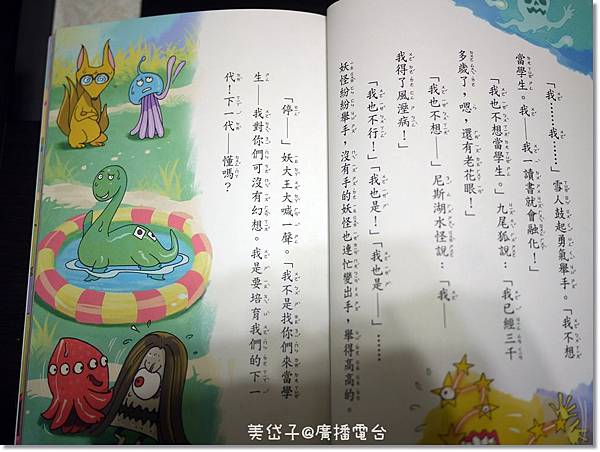 「我……我……」雪人鼓起勇氣舉手。「我不想
當學生。我——我一讀書就會融化！」
「我也不想當學生。」九尾狐說：「我已經三千
多歲了，嗯，還有老花眼！」
「我也不想——」尼斯湖水怪說：「我——
我得了風溼病！」
「我也不行！」「我也是！」「我也是——」……
妖怪紛紛舉手，沒有手的妖怪也連忙變出手，舉得高高的。
「停——」妖大王大喊一聲。「我不是找你們來當學
生——我對你們可沒有幻想。我是要培育我們的下一
代！下一代——懂嗎？
美岱子@廣播電台